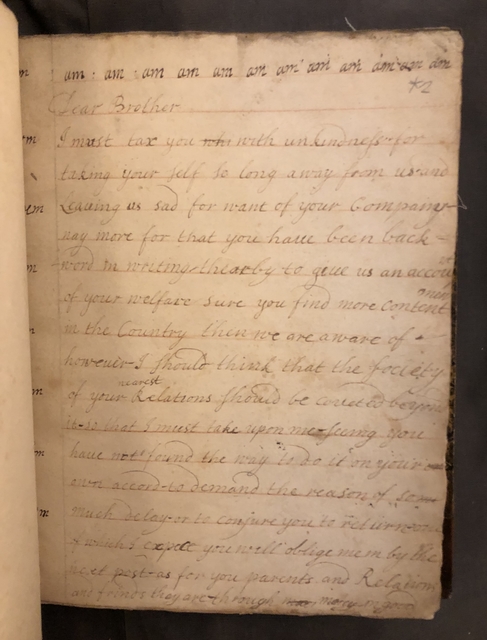 am : am : am am am am am am am am am
*2
Dear Brother
I must tax you with unkindness for
taking your self so long away from us and
Leauing us sad for want of your Company
nay more for that you have been back =
word in writing thearby to geue us an accou nt
of your welfare sure you find more Content ment
in the Country then we are aware of
however I should think that the society
of your nearest Relations should be coveted beyon
it so that I must take upon me seing you
have not found the way to do it on your
own accord to demand the reason of so
much delay or to conjure you to return
of which I expect you will oblige me in by the
next post as for you parents and Relations
and frinds they are through mercy in good